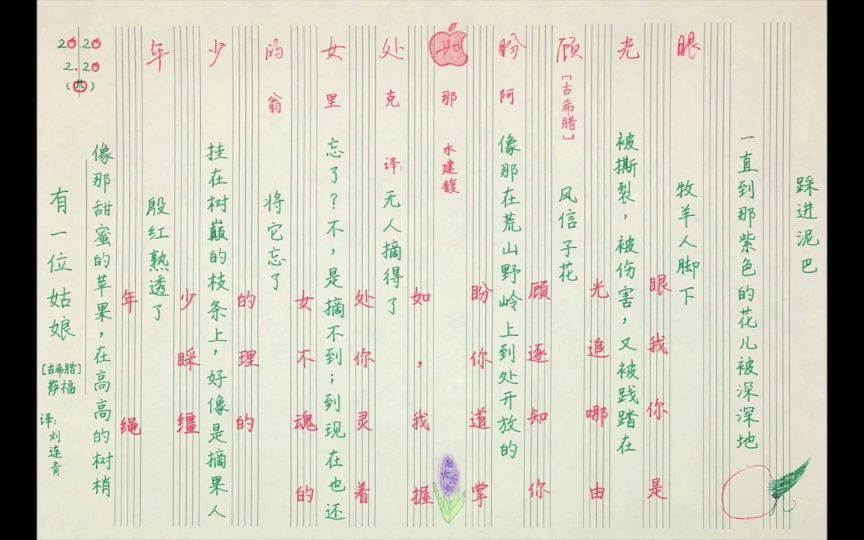 2020
2.20
(四)
有一位姑娘
[古希腊]
萨福
译:刘连青
像那甜蜜的苹果，在高高的树梢
殷红熟透了
挂在树巅的枝条上，好像是摘果人
将它忘了
忘了？不，是摘不到；到现在也还
无人摘得了
像那在荒山野岭上到处开放的
风信子花
被撕裂，被伤害，又被践踏在
牧羊人脚下
一直到那紫色的花儿被深深地
踩进泥巴
眼光顾盼如处女的少年
[古希腊]
阿那克里翁
译:水建馥
眼光顾盼如处女的少年
我追逐你，你不理睬
你哪知道我灵魂的缰绳
是由你掌握着的